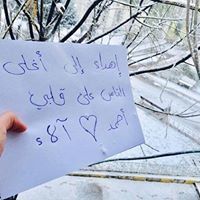 إهداء إلى أغلى
الناس على قلبي
أحمد ♡ آلاء